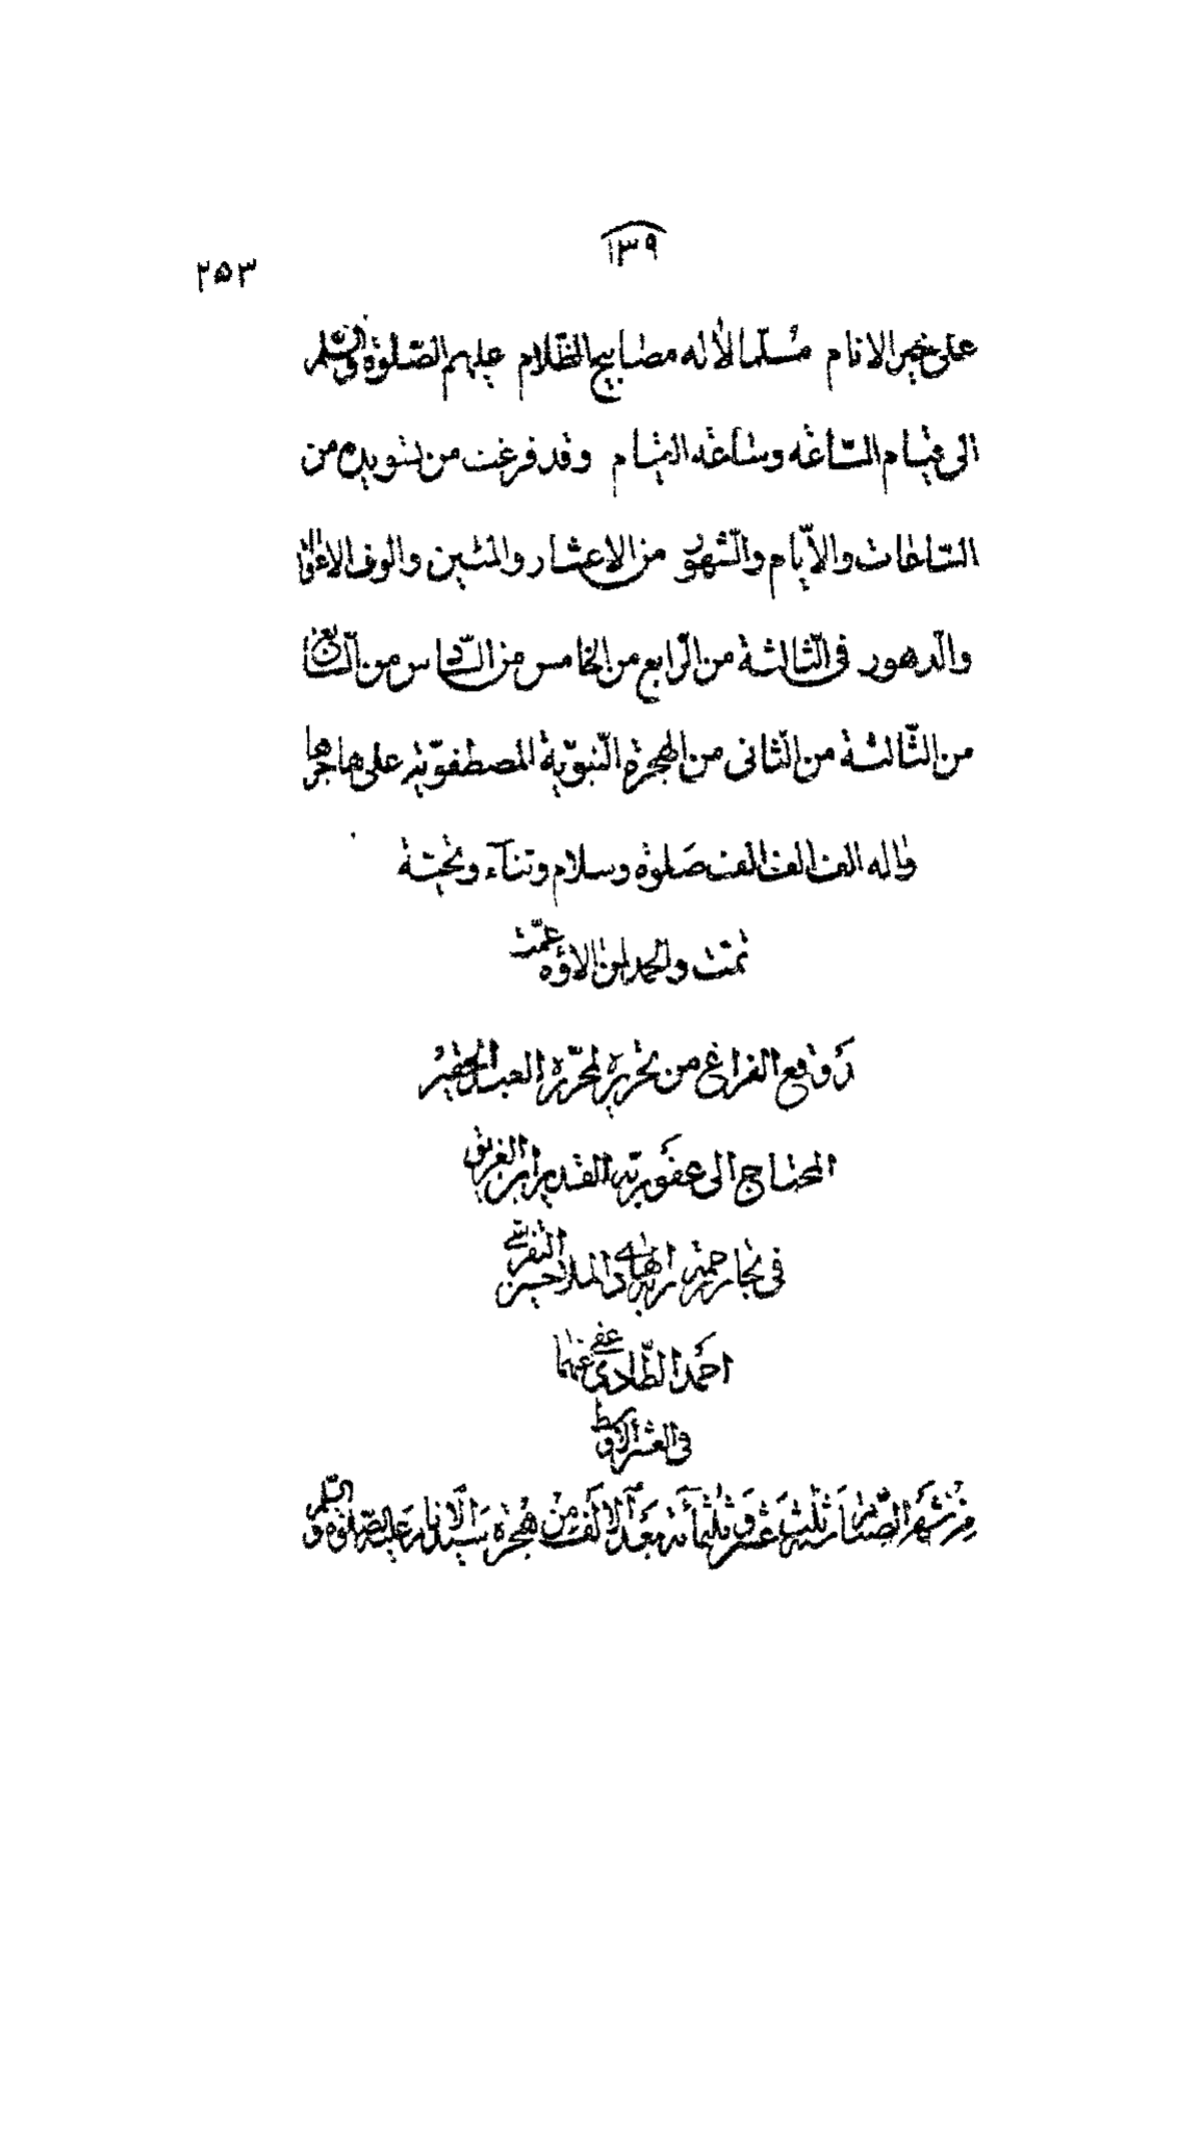 ١٣٩
٢٥٣
على خير الانام مسلّما لاله مصابيح الظّلام عليهم الصّلوة والسّلم
الى قيام السّاعه وساعه القيام وقد فرغت من تسويده من
السّاعات والأيّام والشّهور من الاعشار والمئين والوف الاعوام
والدهور فى الثّالثة من الرّابع من الخامس من السّادس من السّابع
من الثّالثة من الثانى من الهجرة النّبويّة المصطفويّة على هاجرها
واله الف الف الف صلوة وسلام وثنآء وتحيّة
تمّت والحمد لمن الاؤه عمّت
وقع الفراغ من تحريره لمحرّره العبد الحقير
المحتاج الى عفو ربّه القدير الغريق
فى بحار رحمة الملا حسن التفرشى
احمد الطّارى عفى عنهما
فى العشر الاوسط
من شهر الصّيام ثلث عشر وثلثمائة بعد الالف من هجرة سيّد الانام عليه الصّلوة والسّلم